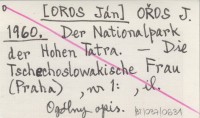 [OROS Ján] OROS J.
1960. Der Nationalpark
der Hohen Tatra. — Die
Tschechoslowakische Frau
(Praha), nr 1: , il.
Ogólny opis.